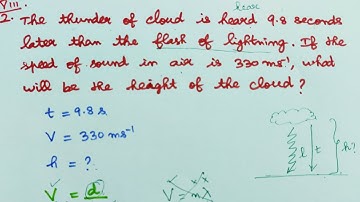 VIII.
hear
2. The thunder of cloud is heard 9.8 seconds
later than the flash of lightning. If the
speed of sound in air is 330 ms⁻¹, what
will be the height of the cloud?
t = 9.8 s
V = 330 ms⁻¹
h = ?
V = d
V = nλ
l t h?